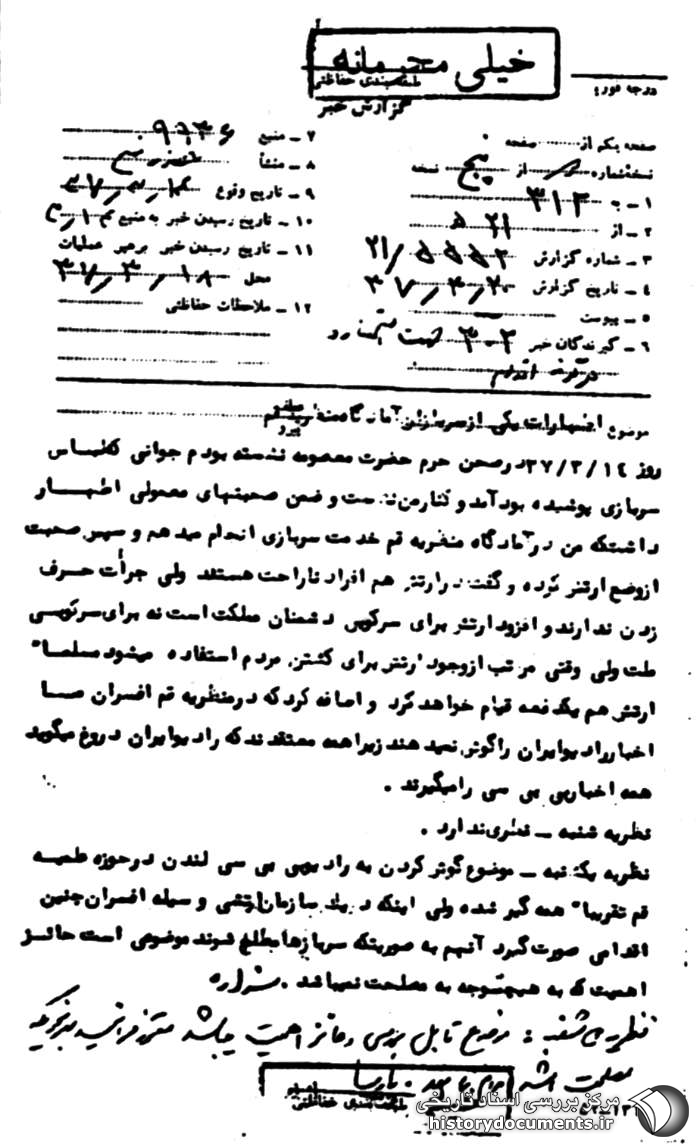 خیلی محرمانه
طبقه‌بندی حفاظتی
گزارش خبر
درجه فوریت
صفحه یکم از صفحه
نسخه شماره از پنج نسخه
۱ - به ۳۱۲
۲ - از ۲۱ ه
۳ - شماره گزارش ۲۱/۵۵۵۲
۴ - تاریخ گزارش ۳۷,۴,۲۰
۵ - پیوست
۶ - گیرندگان خبر
۷ - منبع ۹۶۳۶
۸ - منشأ
۹ - تاریخ وقوع
۱۰ - تاریخ رسیدن خبر به منبع
۱۱ - تاریخ رسیدن خبر برهبر عملیات
محل ۳۷,۳,۱۸
۱۲ - ملاحظات حفاظتی
موضوع اظهارات یکی از سربازان آمادگاه منظریه قم
پیرو
روز ۳۷/۳/۱۴ در صحن حرم حضرت معصومه نشسته بودم جوانی که لباس
سربازی پوشیده بود آمد و کنار من نشست و ضمن صحبتهای معمولی اظهار
داشت که من در آمادگاه منظریه قم خدمت سربازی انجام میدهم و سپس صحبت
از وضع ارتش کرده و گفت در ارتش هم افراد ناراحت هستند ولی جرأت حرف
زدن ندارند و افزود ارتش برای سرکوبی دشمنان مملکت است نه برای سرکوبی
ملت ولی وقتی مرتب از وجود ارتش برای کشتن مردم استفاده میشود مسلما"
ارتش هم یکدفعه قیام خواهد کرد و اضافه کرد که در منظریه قم افسران ما
اخبار رادیو ایران را گوش نمیدهند زیرا همه معتقدند که رادیو ایران دروغ میگوید
همه اخبار بی بی سی را میگیرند .
نظریه شنبه - نظری ندارد .
نظریه یکشنبه - موضوع گوش کردن به رادیو بی بی سی لندن در حوزه علمیه
قم تقریبا" همه گیر شده ولی اینکه در یک سازمان ارتشی و سیله افسران چنین
اقدامی صورت گیرد آنهم به صورتیکه سربازها مطلع شوند موضوعی است حائز
اهمیت که به هیچوجه به مصلحت نمیباشد . شراره
نظریه سه شنبه : موضوع قابل بررسی و حائز اهمیت میباشد
مصلحت باشد . پارسا
طبقه‌بندی حفاظتی
مرکز بررسی اسناد تاریخی
historydocuments.ir